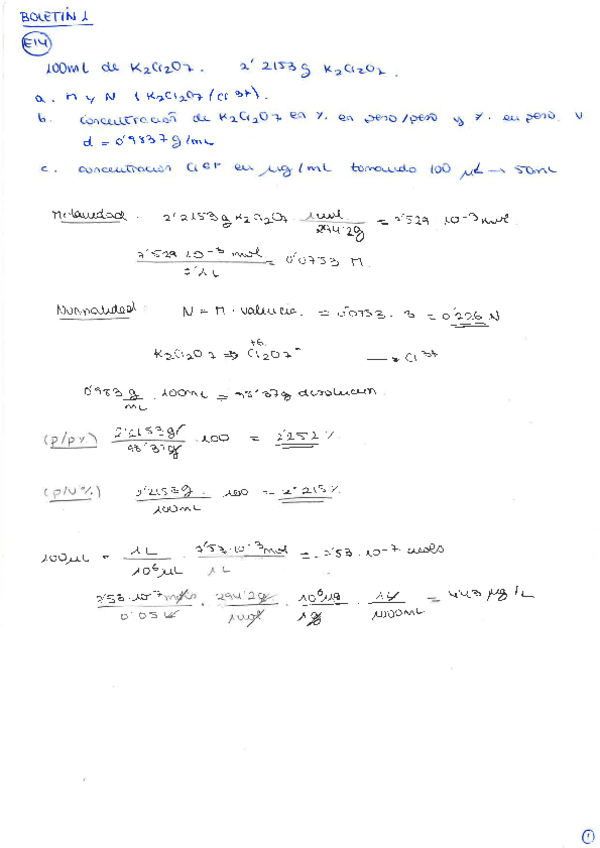 BOLETÍN 1
E14
100mL de K2Cr2O7. 2'2153g K2Cr2O7.
a. M y N (K2Cr2O7/Cr3+).
b. concentración de K2Cr2O7 en % en peso/peso y % en peso v
d = 0'9837g/mL
c. concentración en µg/mL tomando 100 µL → 50mL
Molaridad. 2'2153g K2Cr2O7 1mol / 294'2g = 7'529 10-3 mol
7'529 10-3 mol / 0'1L = 0'0753 M
Normalidad N = M · valencia. = 0'0753 · 3 = 0'226 N
K2Cr2O7 ⇒ Cr2O7= +6 → Cr3+
0'983 g/mL · 100mL = 98'37g disolución
(p/p%) 2'2153g / 98'37g · 100 = 2'252 %
(p/v%) 2'2153g / 100mL · 100 = 2'215 %
100µL · 1L / 106µL · 7'53·10-3mol / 1L = 7'53·10-7 moles
7'53·10-7 moles / 0'05L · 294'2g / 1mol · 106µg / 1g · 1L / 1000mL = 4'43 µg/L
1